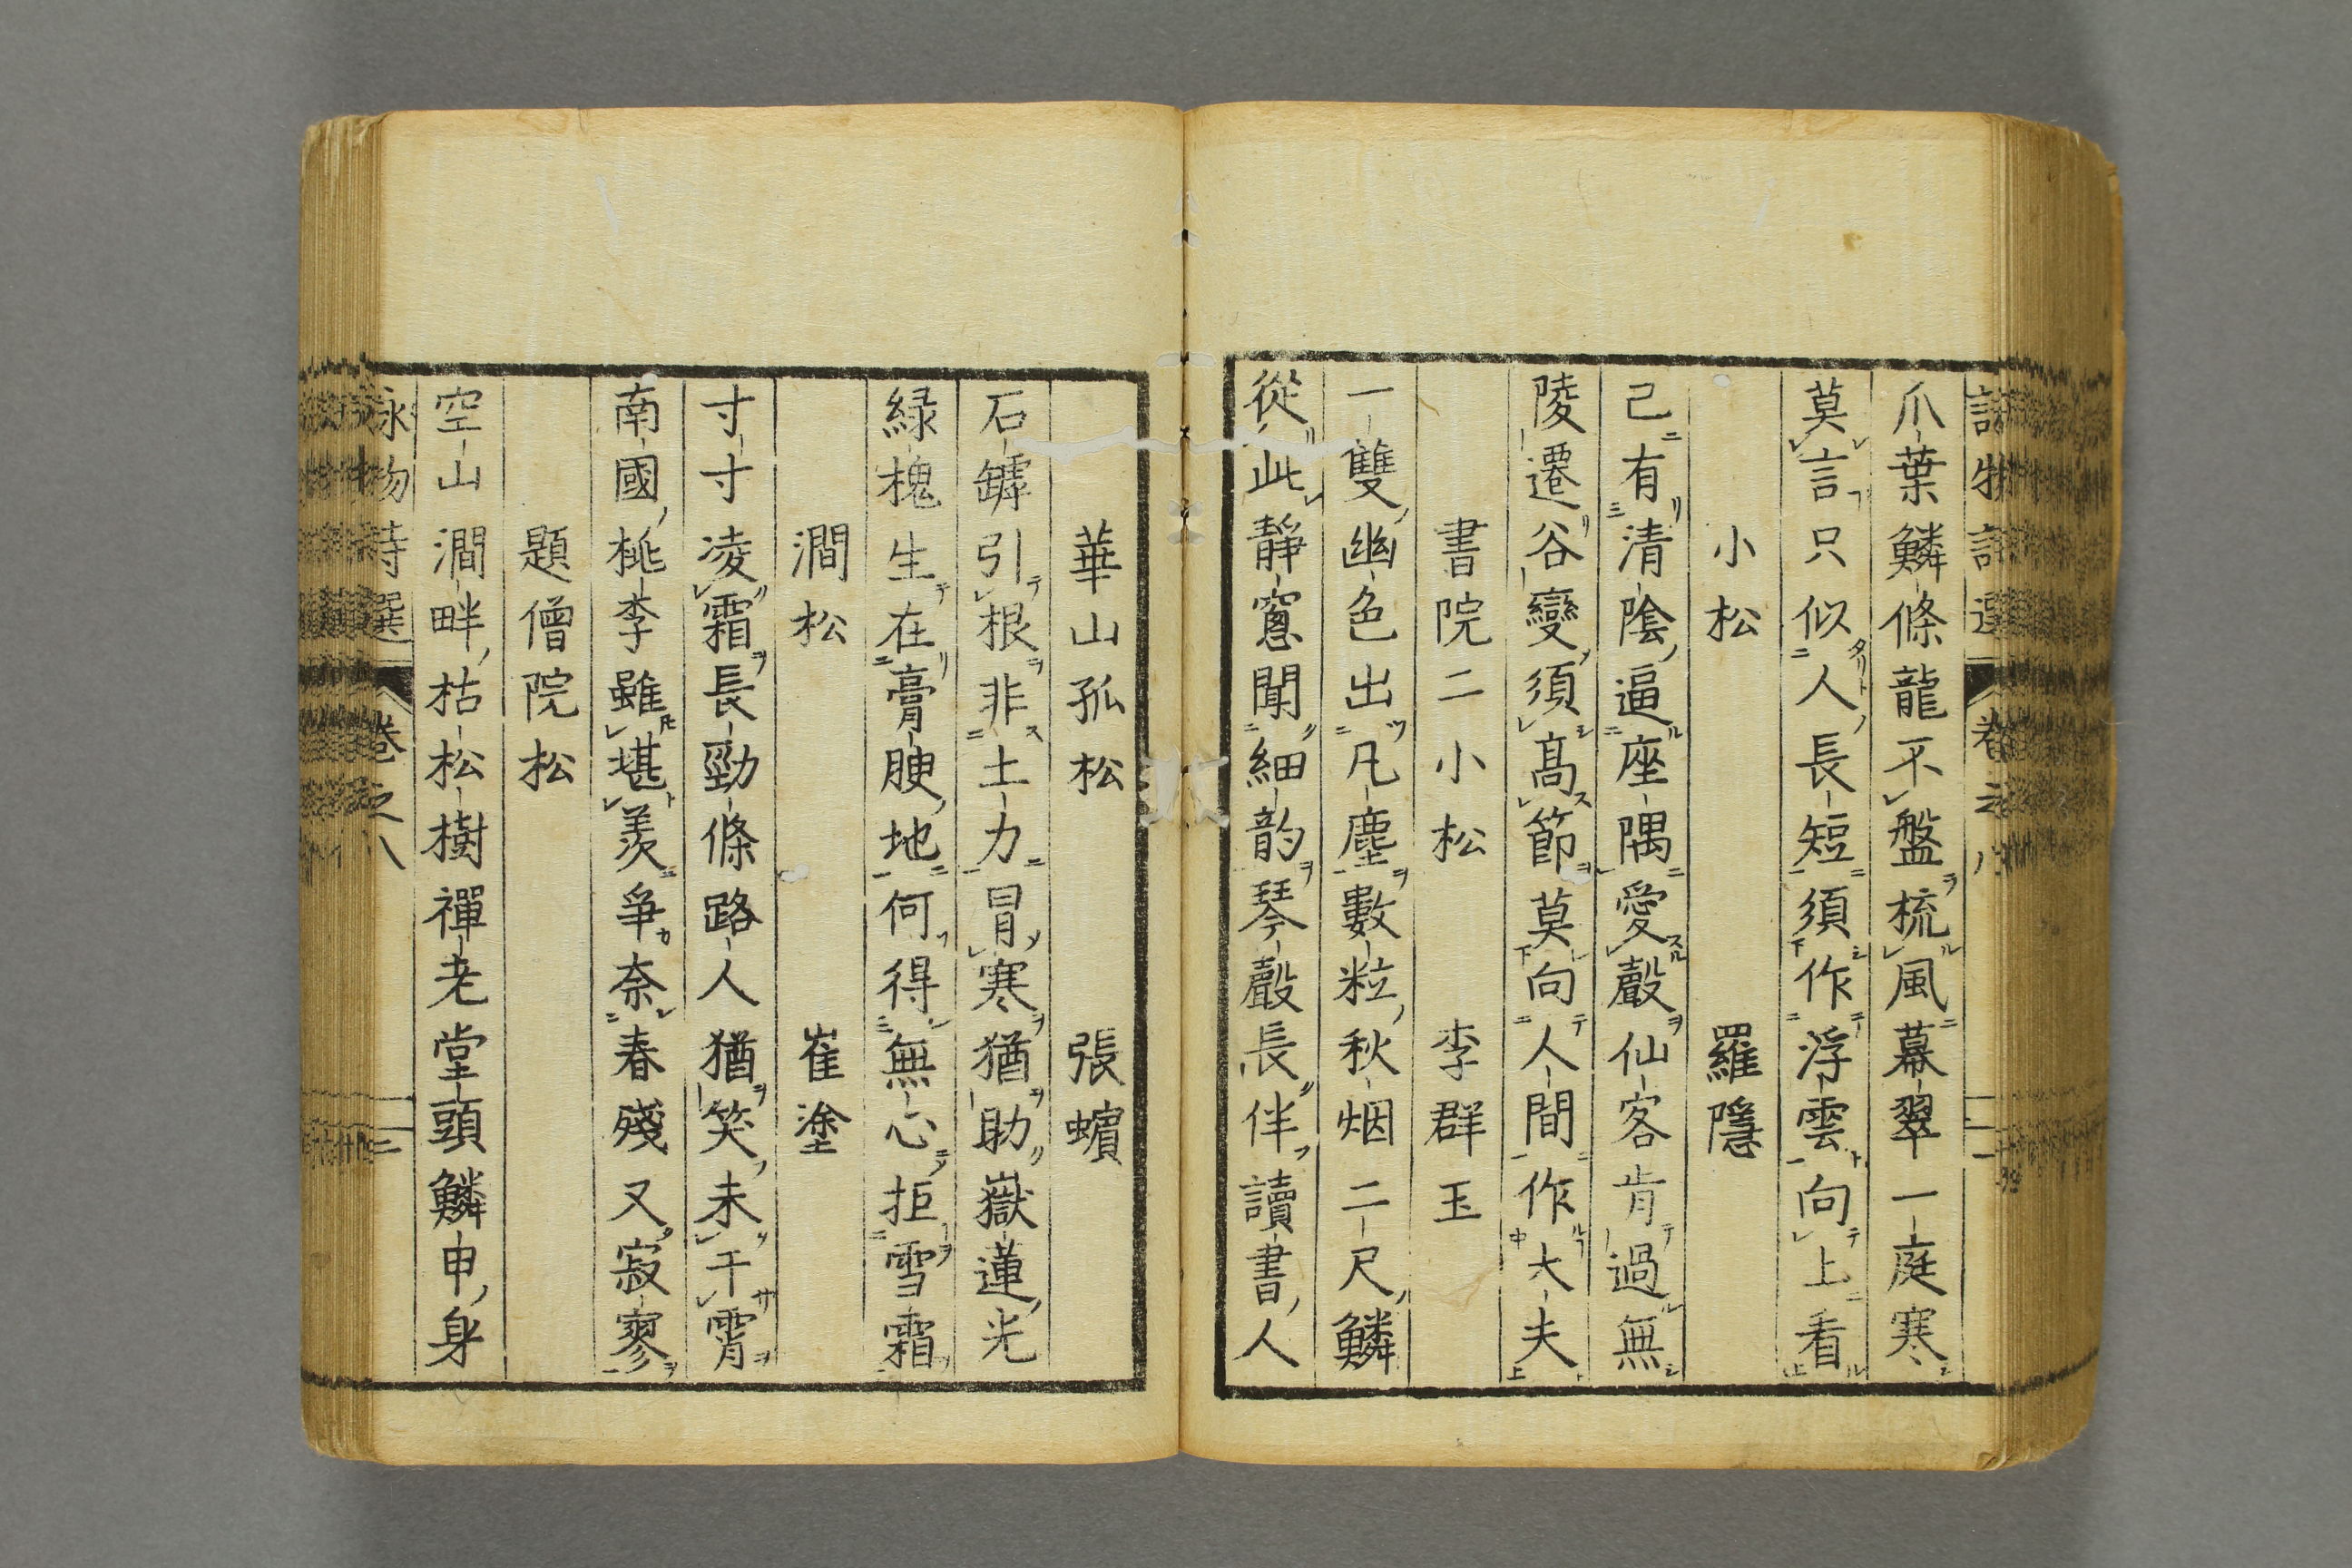 爪葉鱗條龍不盤梳風幕翠一庭寒
莫言只似人長短須作浮雲向上看
小松 羅隱
己有清陰逼座隅愛聲仙客肯過無
陵遷谷變須髙節莫向人間作大夫
書院二小松 李群玉
一雙幽色出凡塵數粒秋烟二尺鱗
從此靜窓聞細韵琴聲長伴讀書人
華山孤松 張蠙
石罅引根非土力冒寒猶助嶽蓮光
緑槐生在膏腴地何得無心拒雪霜
澗松 崔塗
寸寸凌霜長勁條路人猶笑未干霄
南國桃李雖堪羨爭奈春殘又寂寥
題僧院松
空山澗畔枯松樹禪老堂頭鱗申身
詠物詩選 卷之八